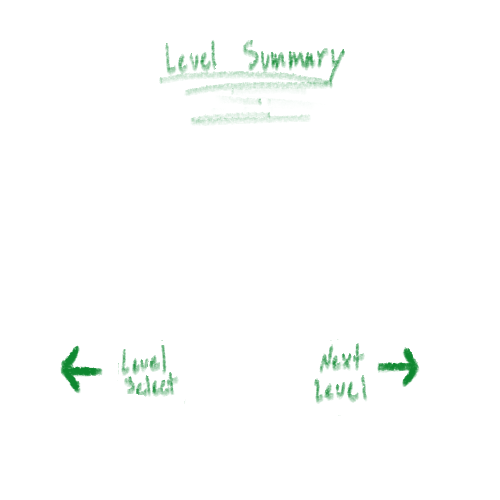 Level Summary
Level
Select
Next
Level